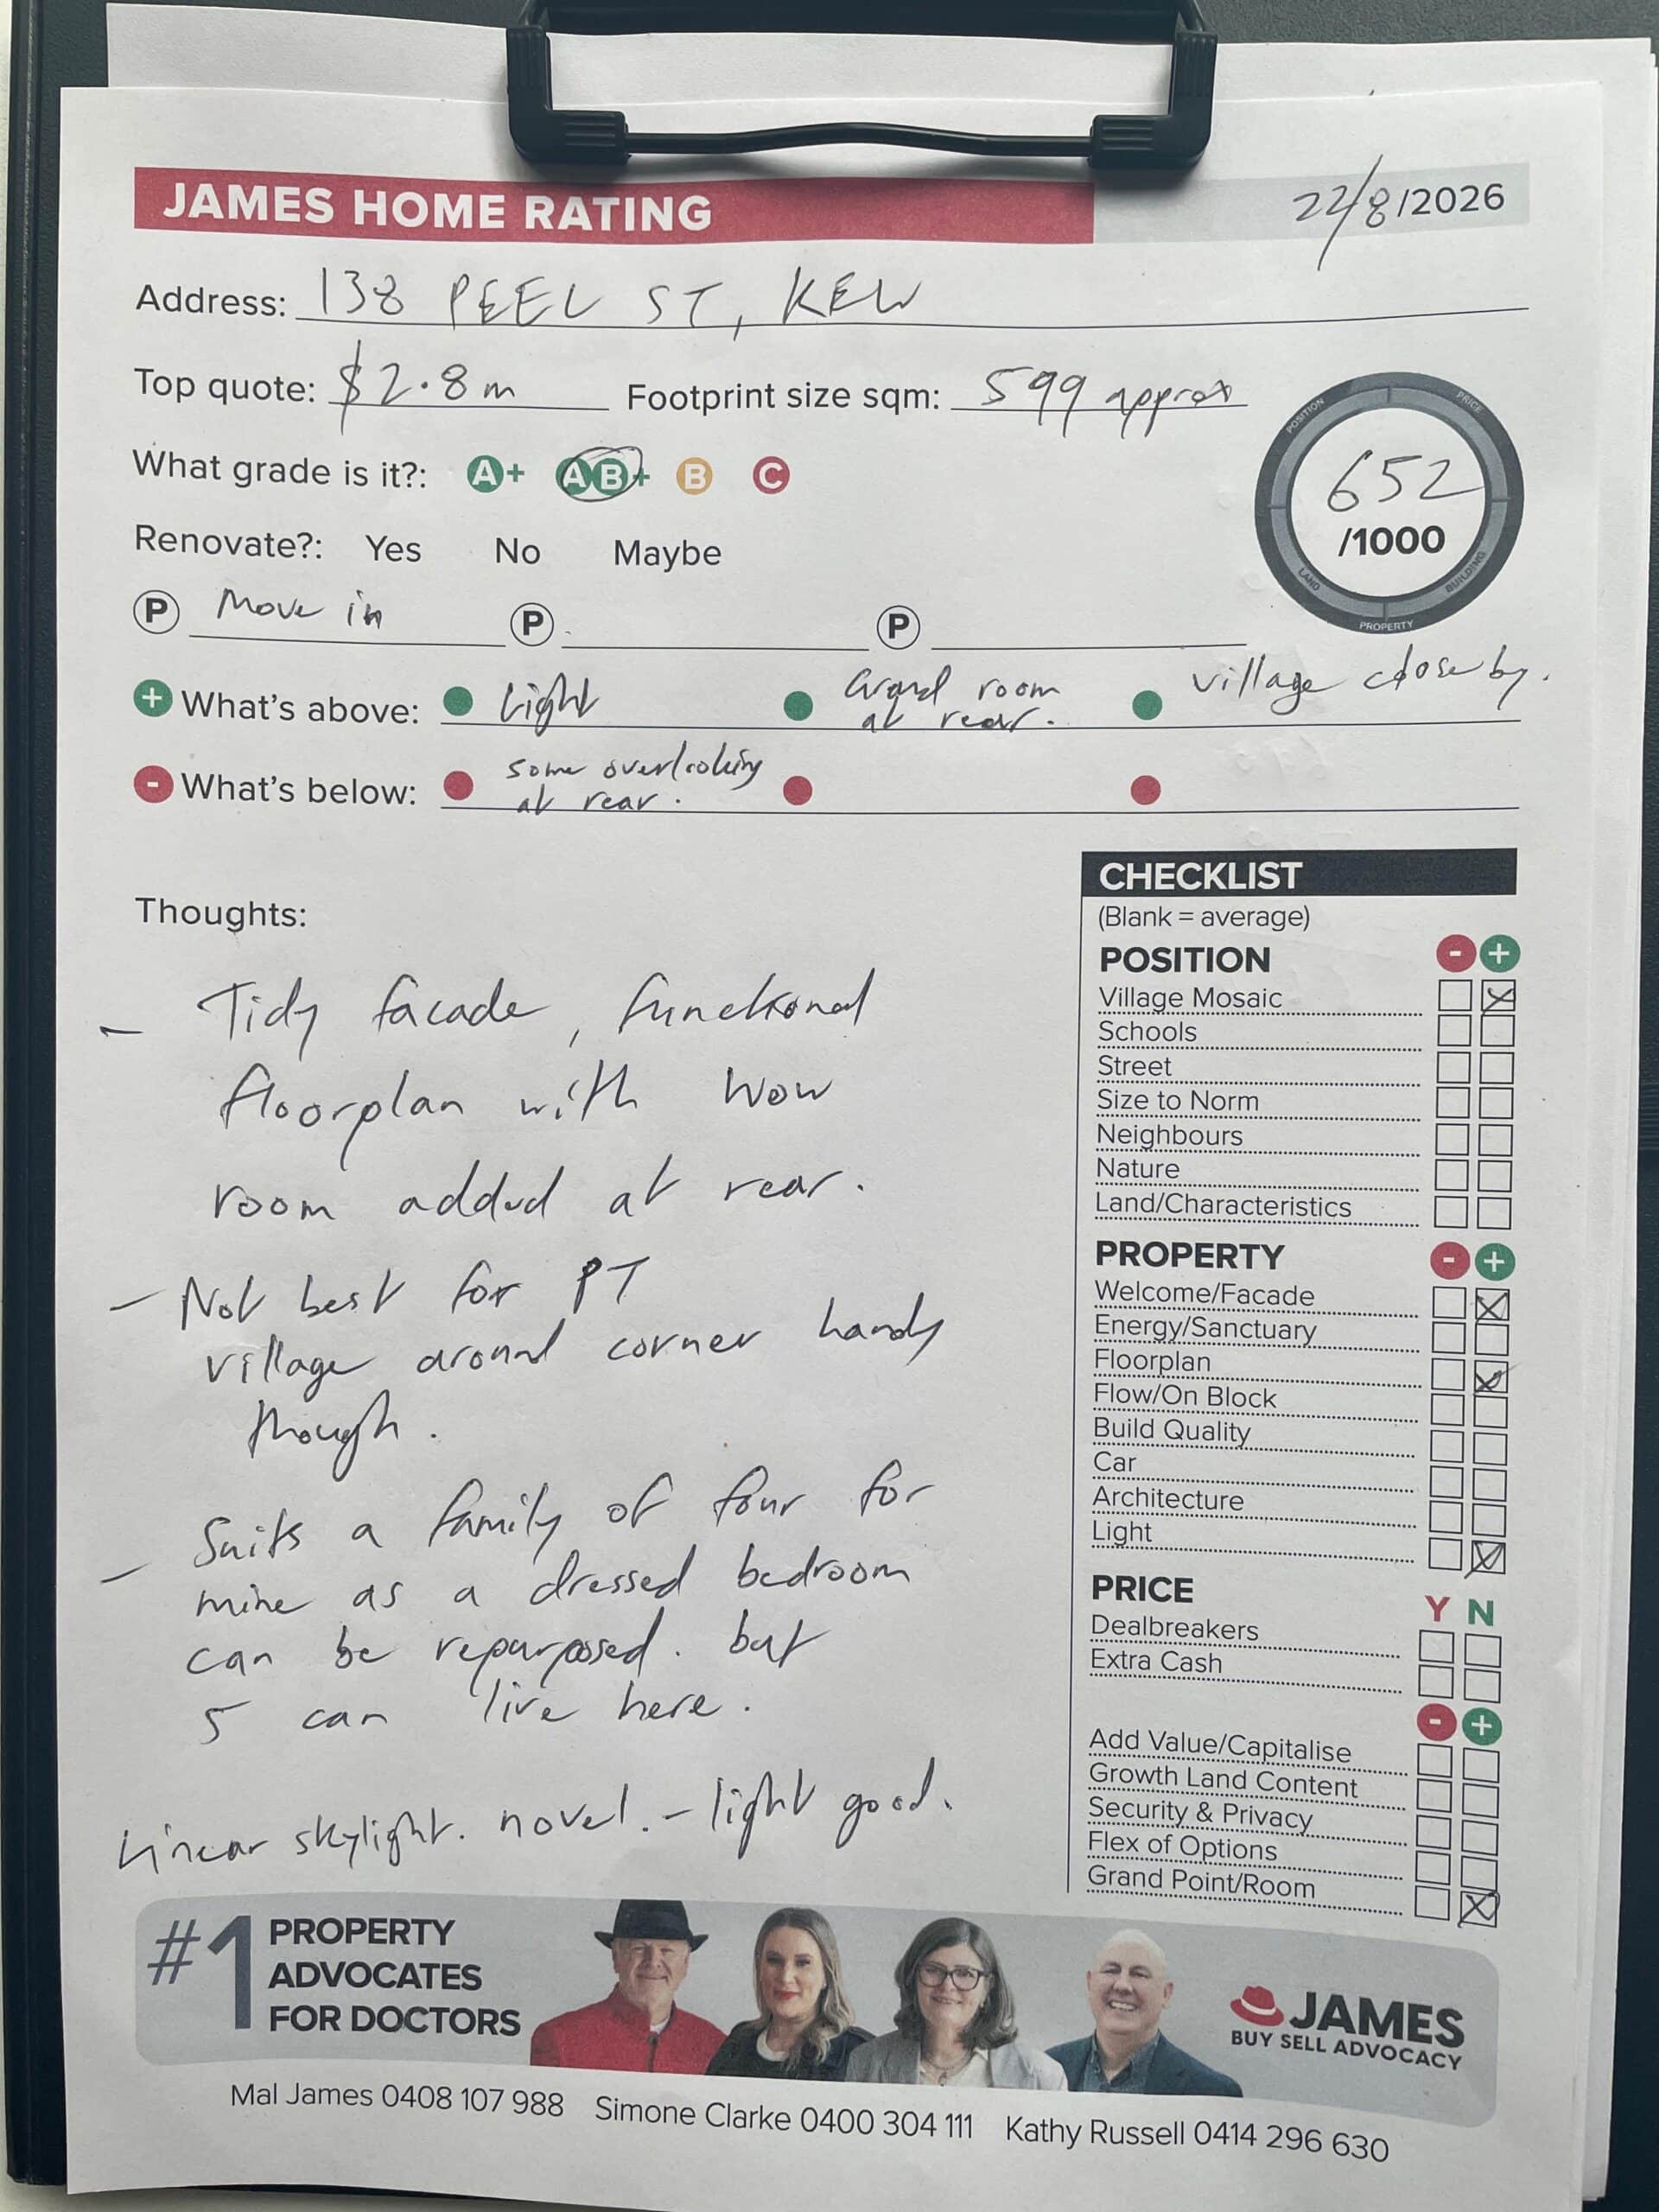 JAMES HOME RATING
22/8/2026
Address: 138 PEEL ST, KEW
Top quote: $2.8m Footprint size sqm: 599 approx
What grade is it?: A+ AB+ B C
652
/1000
POSITION PRICE LAND BUILDING PROPERTY
Renovate?: Yes No Maybe
P Move in P P
+ What's above: Light Grand room at rear. village close by.
- What's below: some overlooking at rear.
Thoughts:
- Tidy facade, functional
floorplan with wow
room added at rear.
- Not best for PT
village around corner handy
though.
- Suits a family of four for
mine as a dressed bedroom
can be repurposed. but
5 can live here.
Linear skylight. novel. - light good.
CHECKLIST
(Blank = average)
POSITION - +
Village Mosaic
Schools
Street
Size to Norm
Neighbours
Nature
Land/Characteristics
PROPERTY - +
Welcome/Facade
Energy/Sanctuary
Floorplan
Flow/On Block
Build Quality
Car
Architecture
Light
PRICE Y N
Dealbreakers
Extra Cash
- +
Add Value/Capitalise
Growth Land Content
Security & Privacy
Flex of Options
Grand Point/Room
#1 PROPERTY
ADVOCATES
FOR DOCTORS
JAMES
BUY SELL ADVOCACY
Mal James 0408 107 988 Simone Clarke 0400 304 111 Kathy Russell 0414 296 630